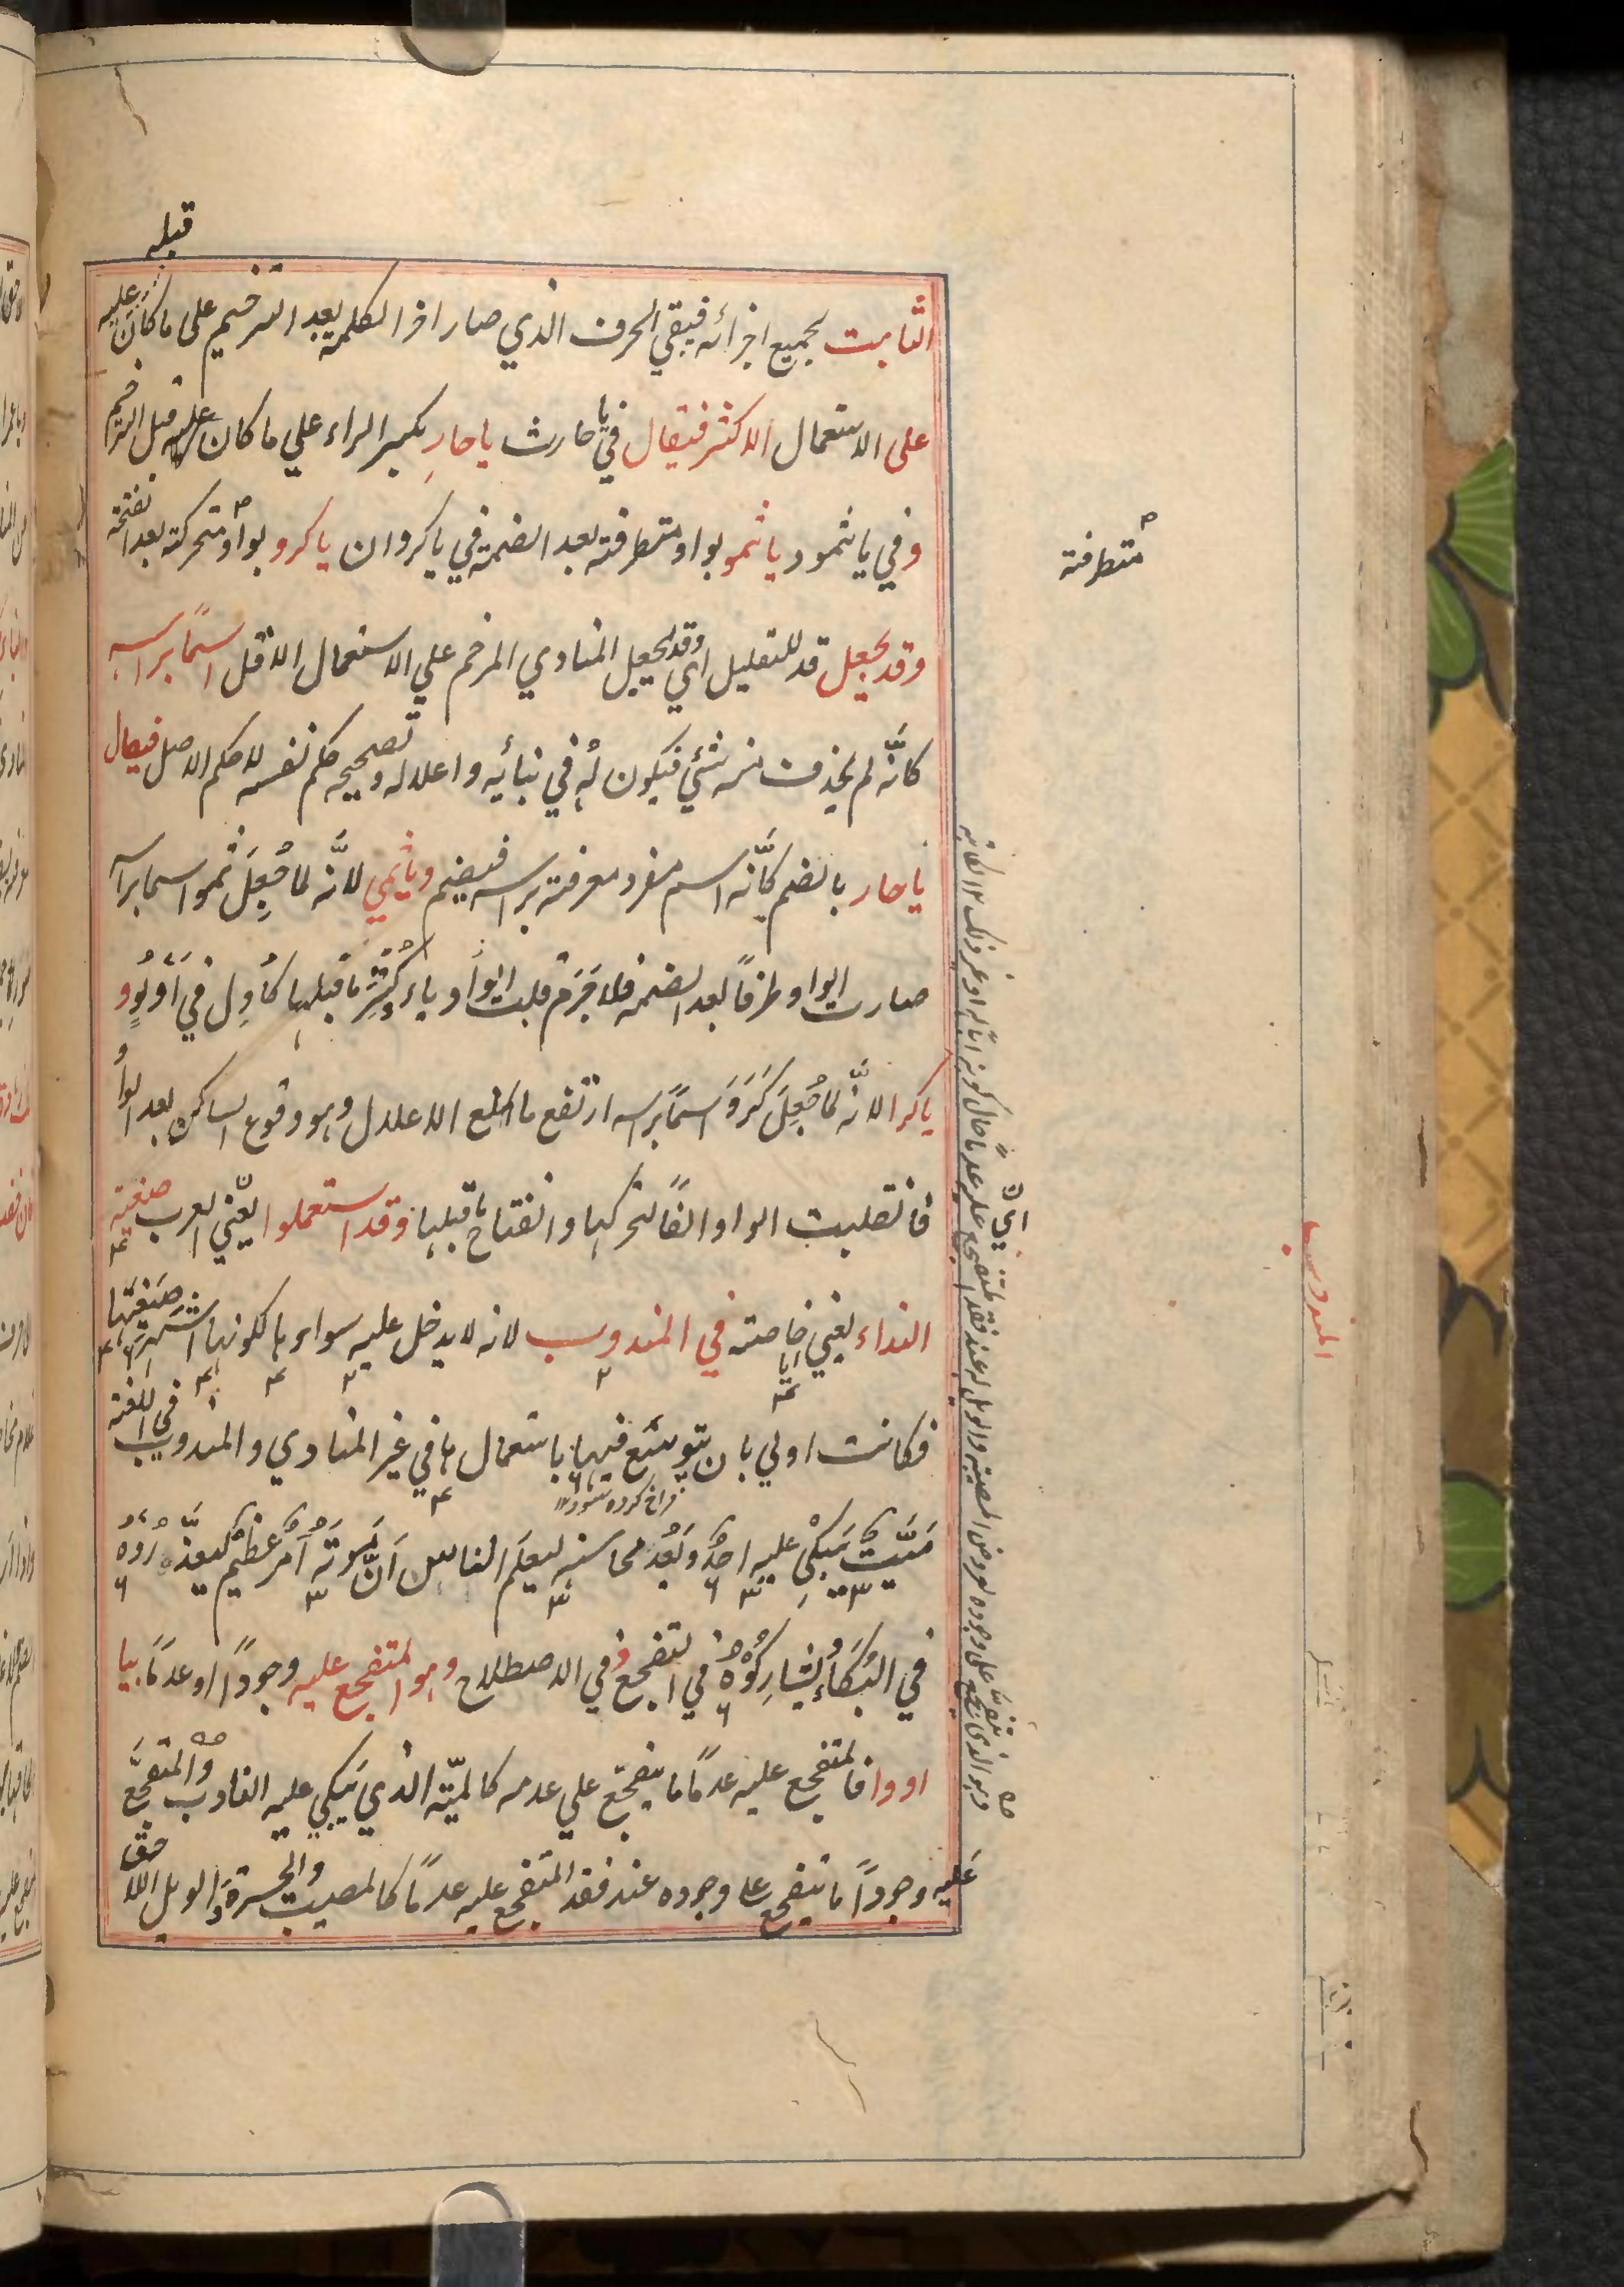 قبله
الثابت بجميع اجزائه فيبقي الحرف الذي صار اخر الكلمة بعد الترخيم على ما كان عليه
على الاستعمال الاكثر فيقال في يا حارث يا حارِ بكسر الراء علي ما كان عليه قبل الترخيم
وفي يا ثمود يا ثمو بواو متطرفة بعد الضمة في يا كروان يا كرو بواو متحركة بعد الفتحة
متطرفة
وقد يجعل قد للتقليل اي وقد يجعل المنادي المرخم علي الاستعمال الاقل اسمًا براسه
كانّه لم يحذف منه شئي فيكون لهٗ في بنائيه واعلاله وتصحيحه حكم نفسه لا حكم الاصل فيقال
يا حار بالضم كانّه اسم مفرد معرفة براسه فيضم ويا ثمي لانّه لما جُعِلَ ثمو اسما براسه
صارت الواو طرفًا بعد الضمة فلا جَرَم قلبت الواو ياء وكُسِّرَ ما قبلها كاَدِل في اَدْلُوٍ و
يا كرا لانّه لما جُعِلَ كَرَوَ اسمًا براسه ارتفع مانع الاعلال وهو وقوع الساكن بعد الواو
فانقلبت الواو الفًا لتحركها وانفتاح ما قبلها وقد استعملوا يعني العرب صيغة
النداء يعني يا خاصة في المندوب لانه لا يدخل عليه سواء ها لكونها اشهر صيغتها
المندوب
فكانت اولي بان يتوسّع فيها باستعمال ها في غير المنادي والمندوب في اللغة
فراخ كرده شود
مَيِّت يَبْكِي عليه احدٌ ويَعُد محاسنه ليعلم الناس اَنَّ موتَه اَمر عَظِيم ليعذّروْهُ
في البُكَاءِ ويُشارِكُوْهُ في التفجع وفي الاصطلاح وهو المتفجع عليه وجودًا او عدمًا بيا
او وا فالمتفجع عليه عدمًا ما يتفجّع علي عدمه كالميّت الذي يَبكي عليه النادب والمتفجَّع
عليه وجودًا ما يتفجع علي وجوده عند فقد المتفجع عليه عدمًا كالمصيبة والحسرة والويل اللاحق